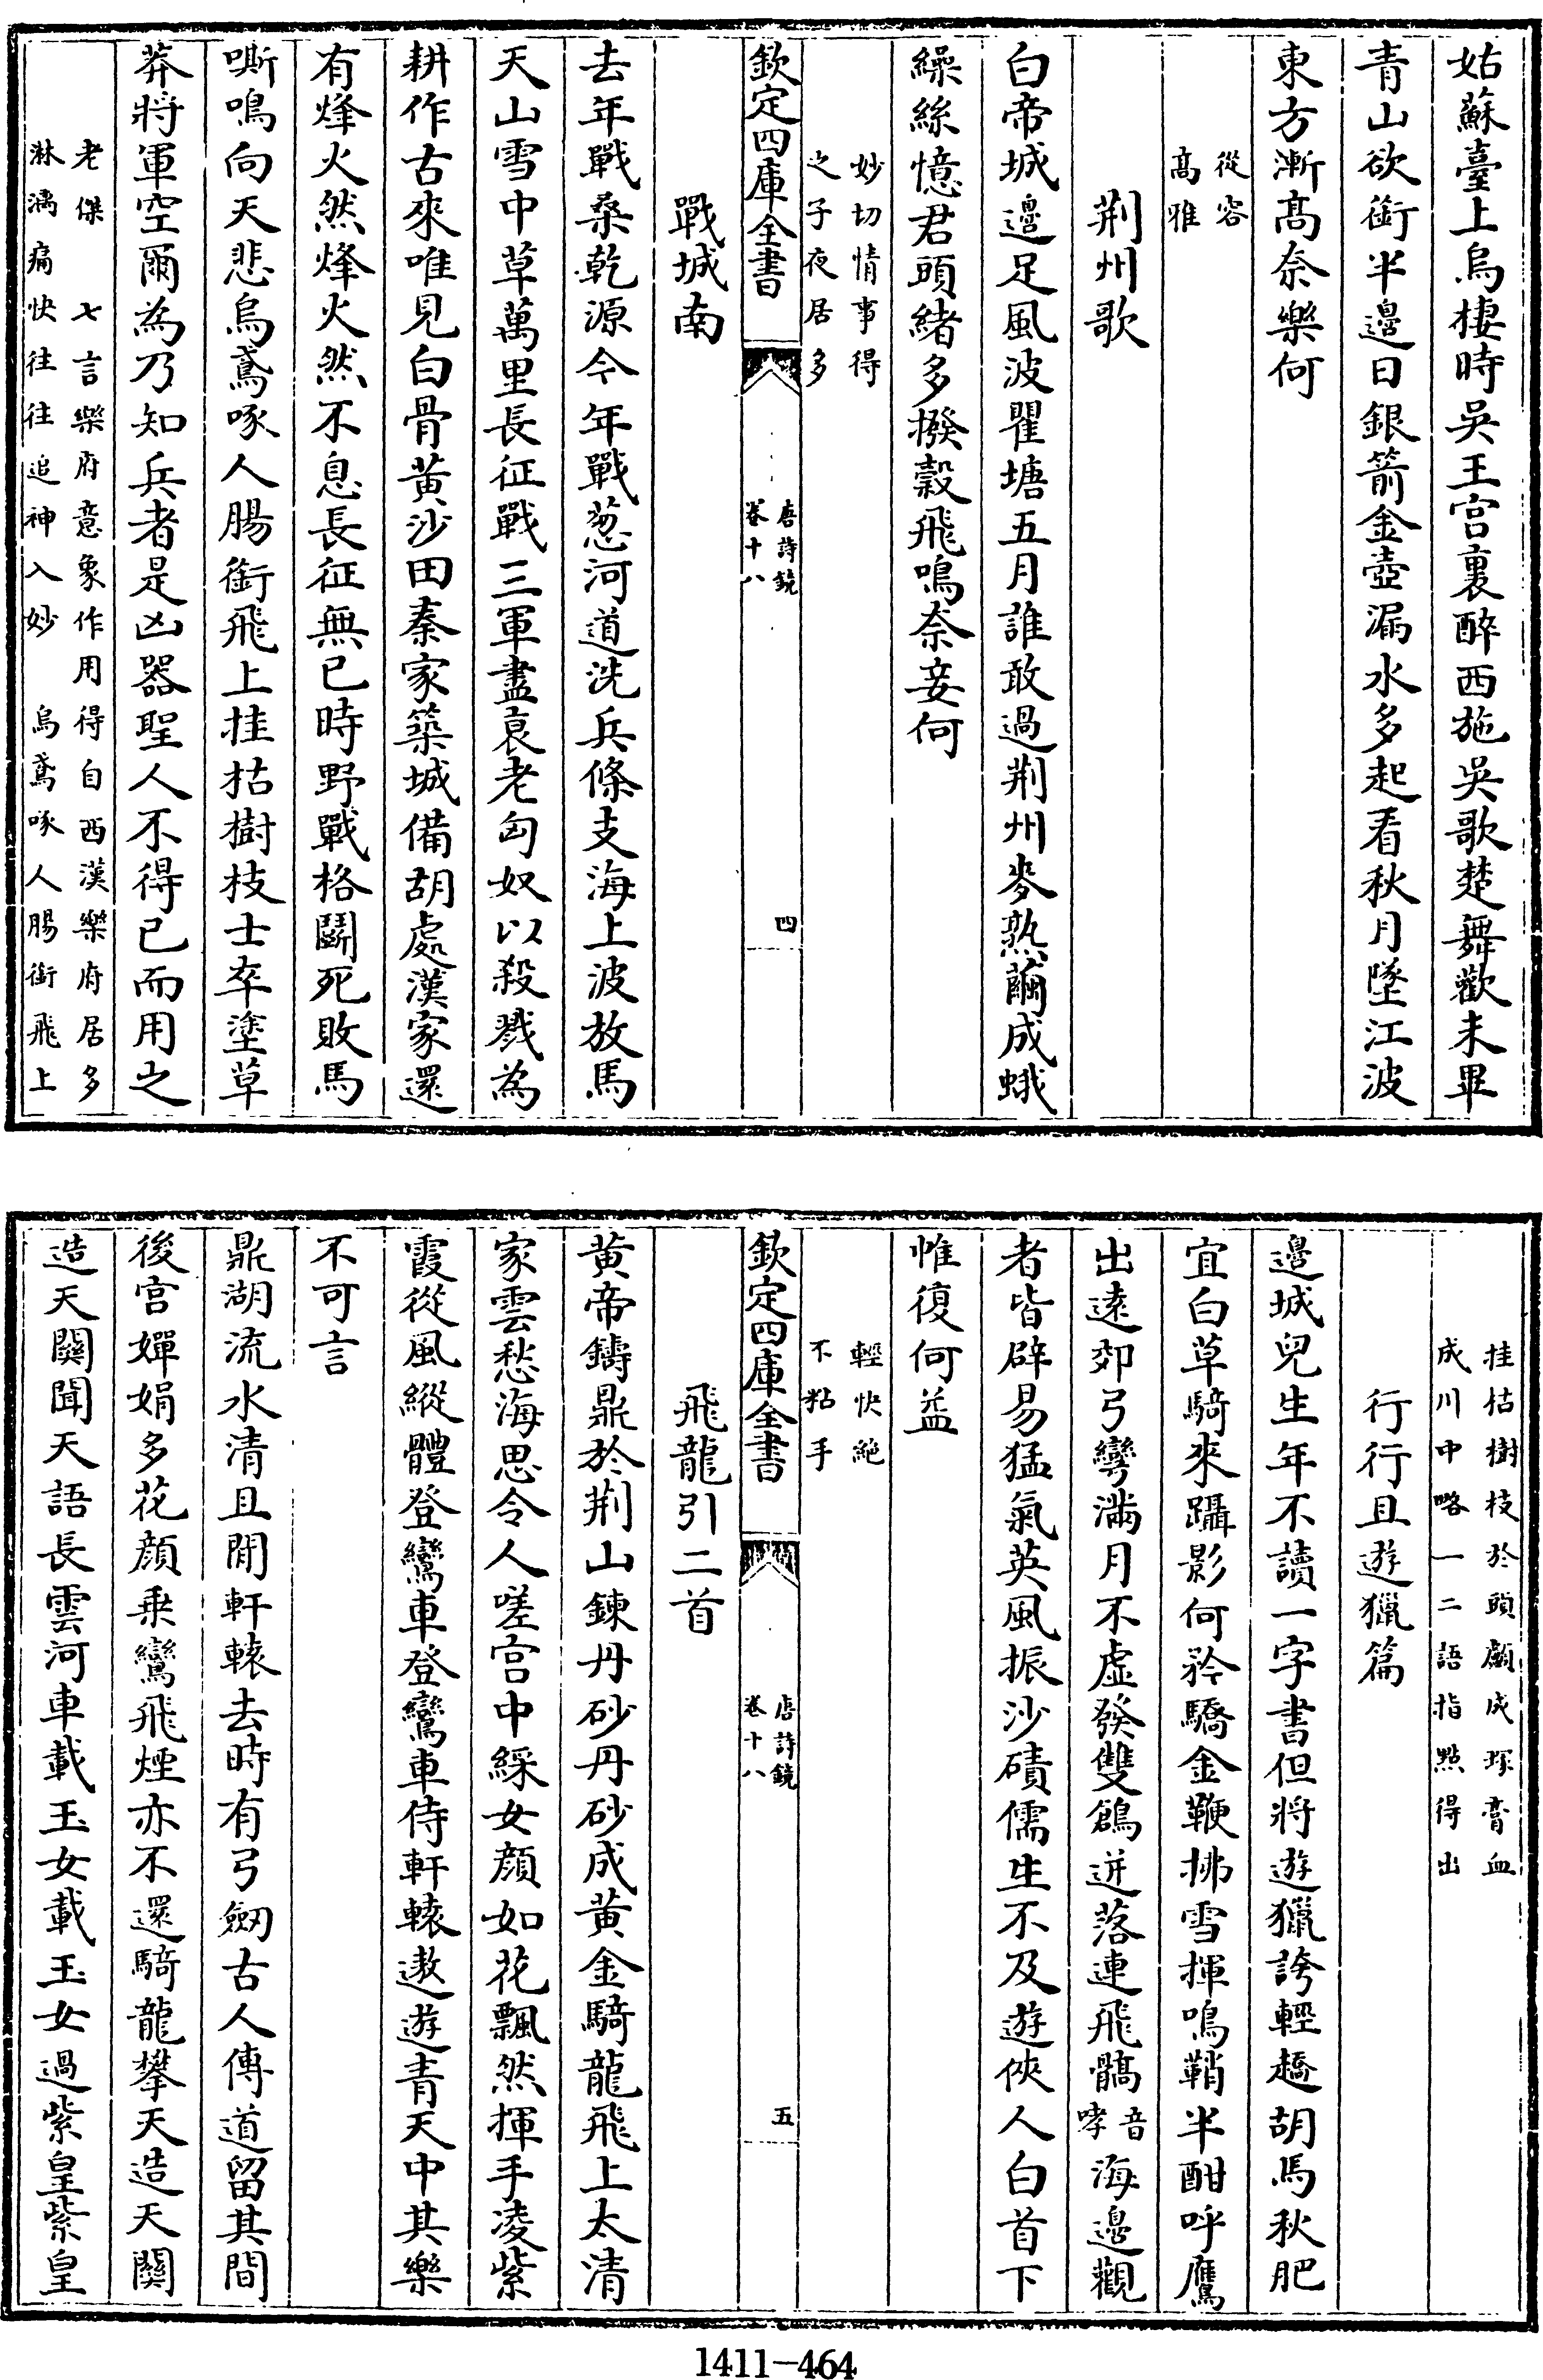 姑蘇臺上烏棲時吳王宫裏醉西施吳歌楚舞歡未畢
青山欲銜半邉日銀箭金壺漏水多起看秋月墜江波
東方漸髙奈樂何
從容
髙雅
荆州歌
白帝城邉足風波瞿塘五月誰敢過荆州麥熟繭成蛾
繰絲憶君頭緒多撥穀飛鳴奈妾何
妙切情事得
之子夜居多
欽定四庫全書
唐詩鏡
卷十八
四
戰城南
去年戰桑乾源今年戰葱河道洗兵條支海上波放馬
天山雪中草萬里長征戰三軍盡衰老匈奴以殺戮為
耕作古來唯見白骨黄沙田秦家築城備胡處漢家還
有烽火然烽火然不息長征無已時野戰格鬭死敗馬
嘶鳴向天悲烏鳶啄人腸銜飛上挂枯樹枝士卒塗草
莽將軍空爾為乃知兵者是凶器聖人不得已而用之
老傑 七言樂府意象作用得自西漢樂府居多
淋漓痛快往往追神入妙 烏鳶啄人腸銜飛上
挂枯樹枝於頭顱成塚膏血
成川中略一二語指㸃得出
行行且遊獵篇
邉城兒生年不讀一字書但將遊獵誇輕趫胡馬秋肥
宜白草騎來躡影何矜驕金鞭拂雪揮鳴鞘半酣呼鷹
出遠郊弓彎滿月不虚發雙鶬迸落連飛髇音哮海邉觀
者皆辟易猛氣英風振沙磧儒生不及遊俠人白首下
帷復何益
輕快絶
不粘手
欽定四庫全書
唐詩鏡
卷十八
五
飛龍引二首
黄帝鑄鼎於荆山鍊丹砂丹砂成黄金騎龍飛上太清
家雲愁海思令人嗟宫中綵女顔如花飄然揮手凌紫
霞從風縱體登鸞車登鸞車侍軒轅遨遊青天中其樂
不可言
鼎湖流水清且閒軒轅去時有弓劒古人傳道留其間
後宫嬋娟多花顔乗鸞飛煙亦不還騎龍攀天造天闗
造天闗聞天語長雲河車載玉女載玉女過紫皇紫皇
1411-464